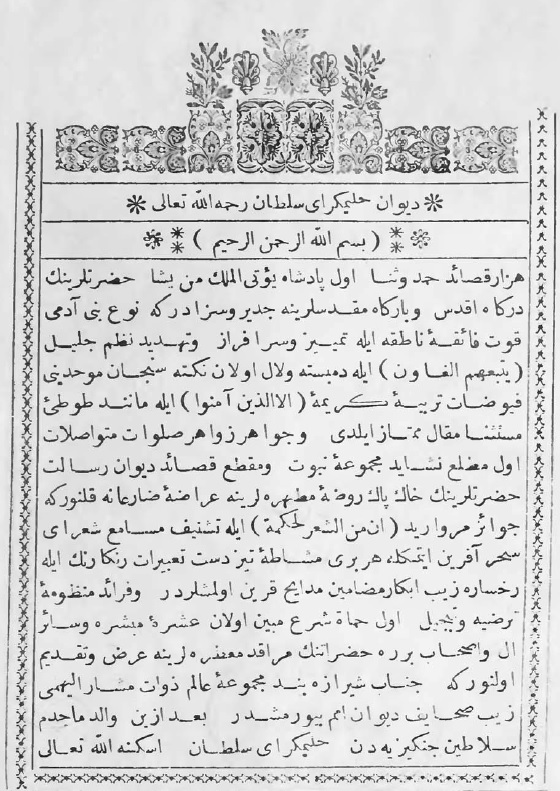 ديوان حليمكراى سلطان رحمه الله تعالى
( بسم الله الرحمن الرحيم )
هزار قصائد حمد وثنا اول پادشاه يؤتى الملك من يشا حضرتلرينك
دركاه اقدس وباركاه مقدسلرينه جدير وسزادركه نوع بنى آدمى
قوت فائقۀ ناطقه ايله تمييز وسرافراز وتهديد نظم جليل
( يتبعهم الغاون ) ايله دمبسته ولال اولان نكته سنجان موحدينى
فيوضات تربيۀ كريمۀ ( الا الذين آمنوا ) ايله مانند طوطئ
مستثنا مقال ممتاز ايلدى وجواهر زواهر صلوات متواصلات
اول مطلع نشايد مجموعۀ نبوت ومقطع قصائد ديوان رسالت
حضرتلرينك خاك پاك روضۀ مطهره لرينه عراضۀ ضارعانه قلنوركه
جوائز مرواريد ( ان من الشعر لحكمة ) ايله تشنيف مسامع شعراى
سحر آفرين ايتمكله هربرى مشاطۀ تيز دست تعبيرات رنكارنك ايله
رخساره زيب ابكار مضامين مدايح قرين اولمشلردر وفرائد منظومۀ
ترضيه وتبجيل اول حماة شرع مبين اولان عشرۀ مبشره وسائر
ال واصحاب برره حضراتنك مراقد معفره لرينه عرض وتقديم
اولنوركه جناب شيرازه بند مجموعۀ عالم ذوات مشار اليهمى
زيب صحايف ديوان امم بيورمشدر بعد ازين والد ماجدم
سلاطين جنكيزيه دن حليمكراى سلطان اسكنه الله تعالى